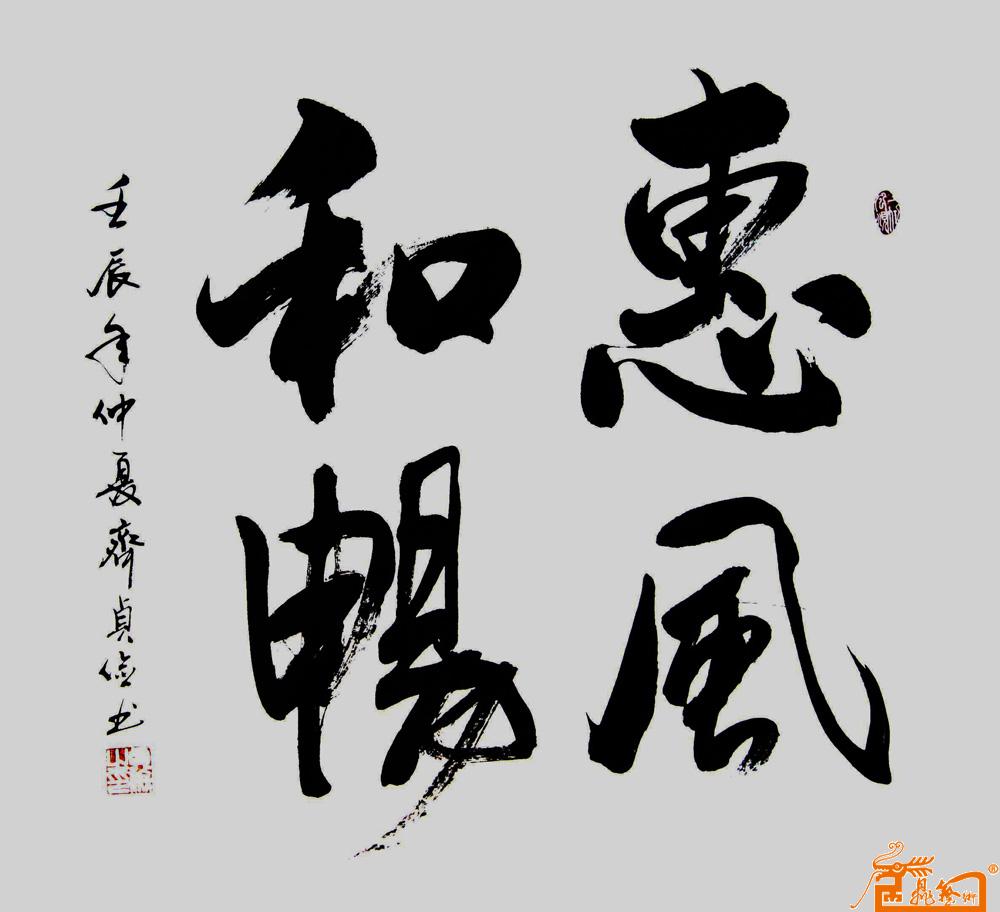 惠風
和暢
壬辰年仲夏齊貞儉书